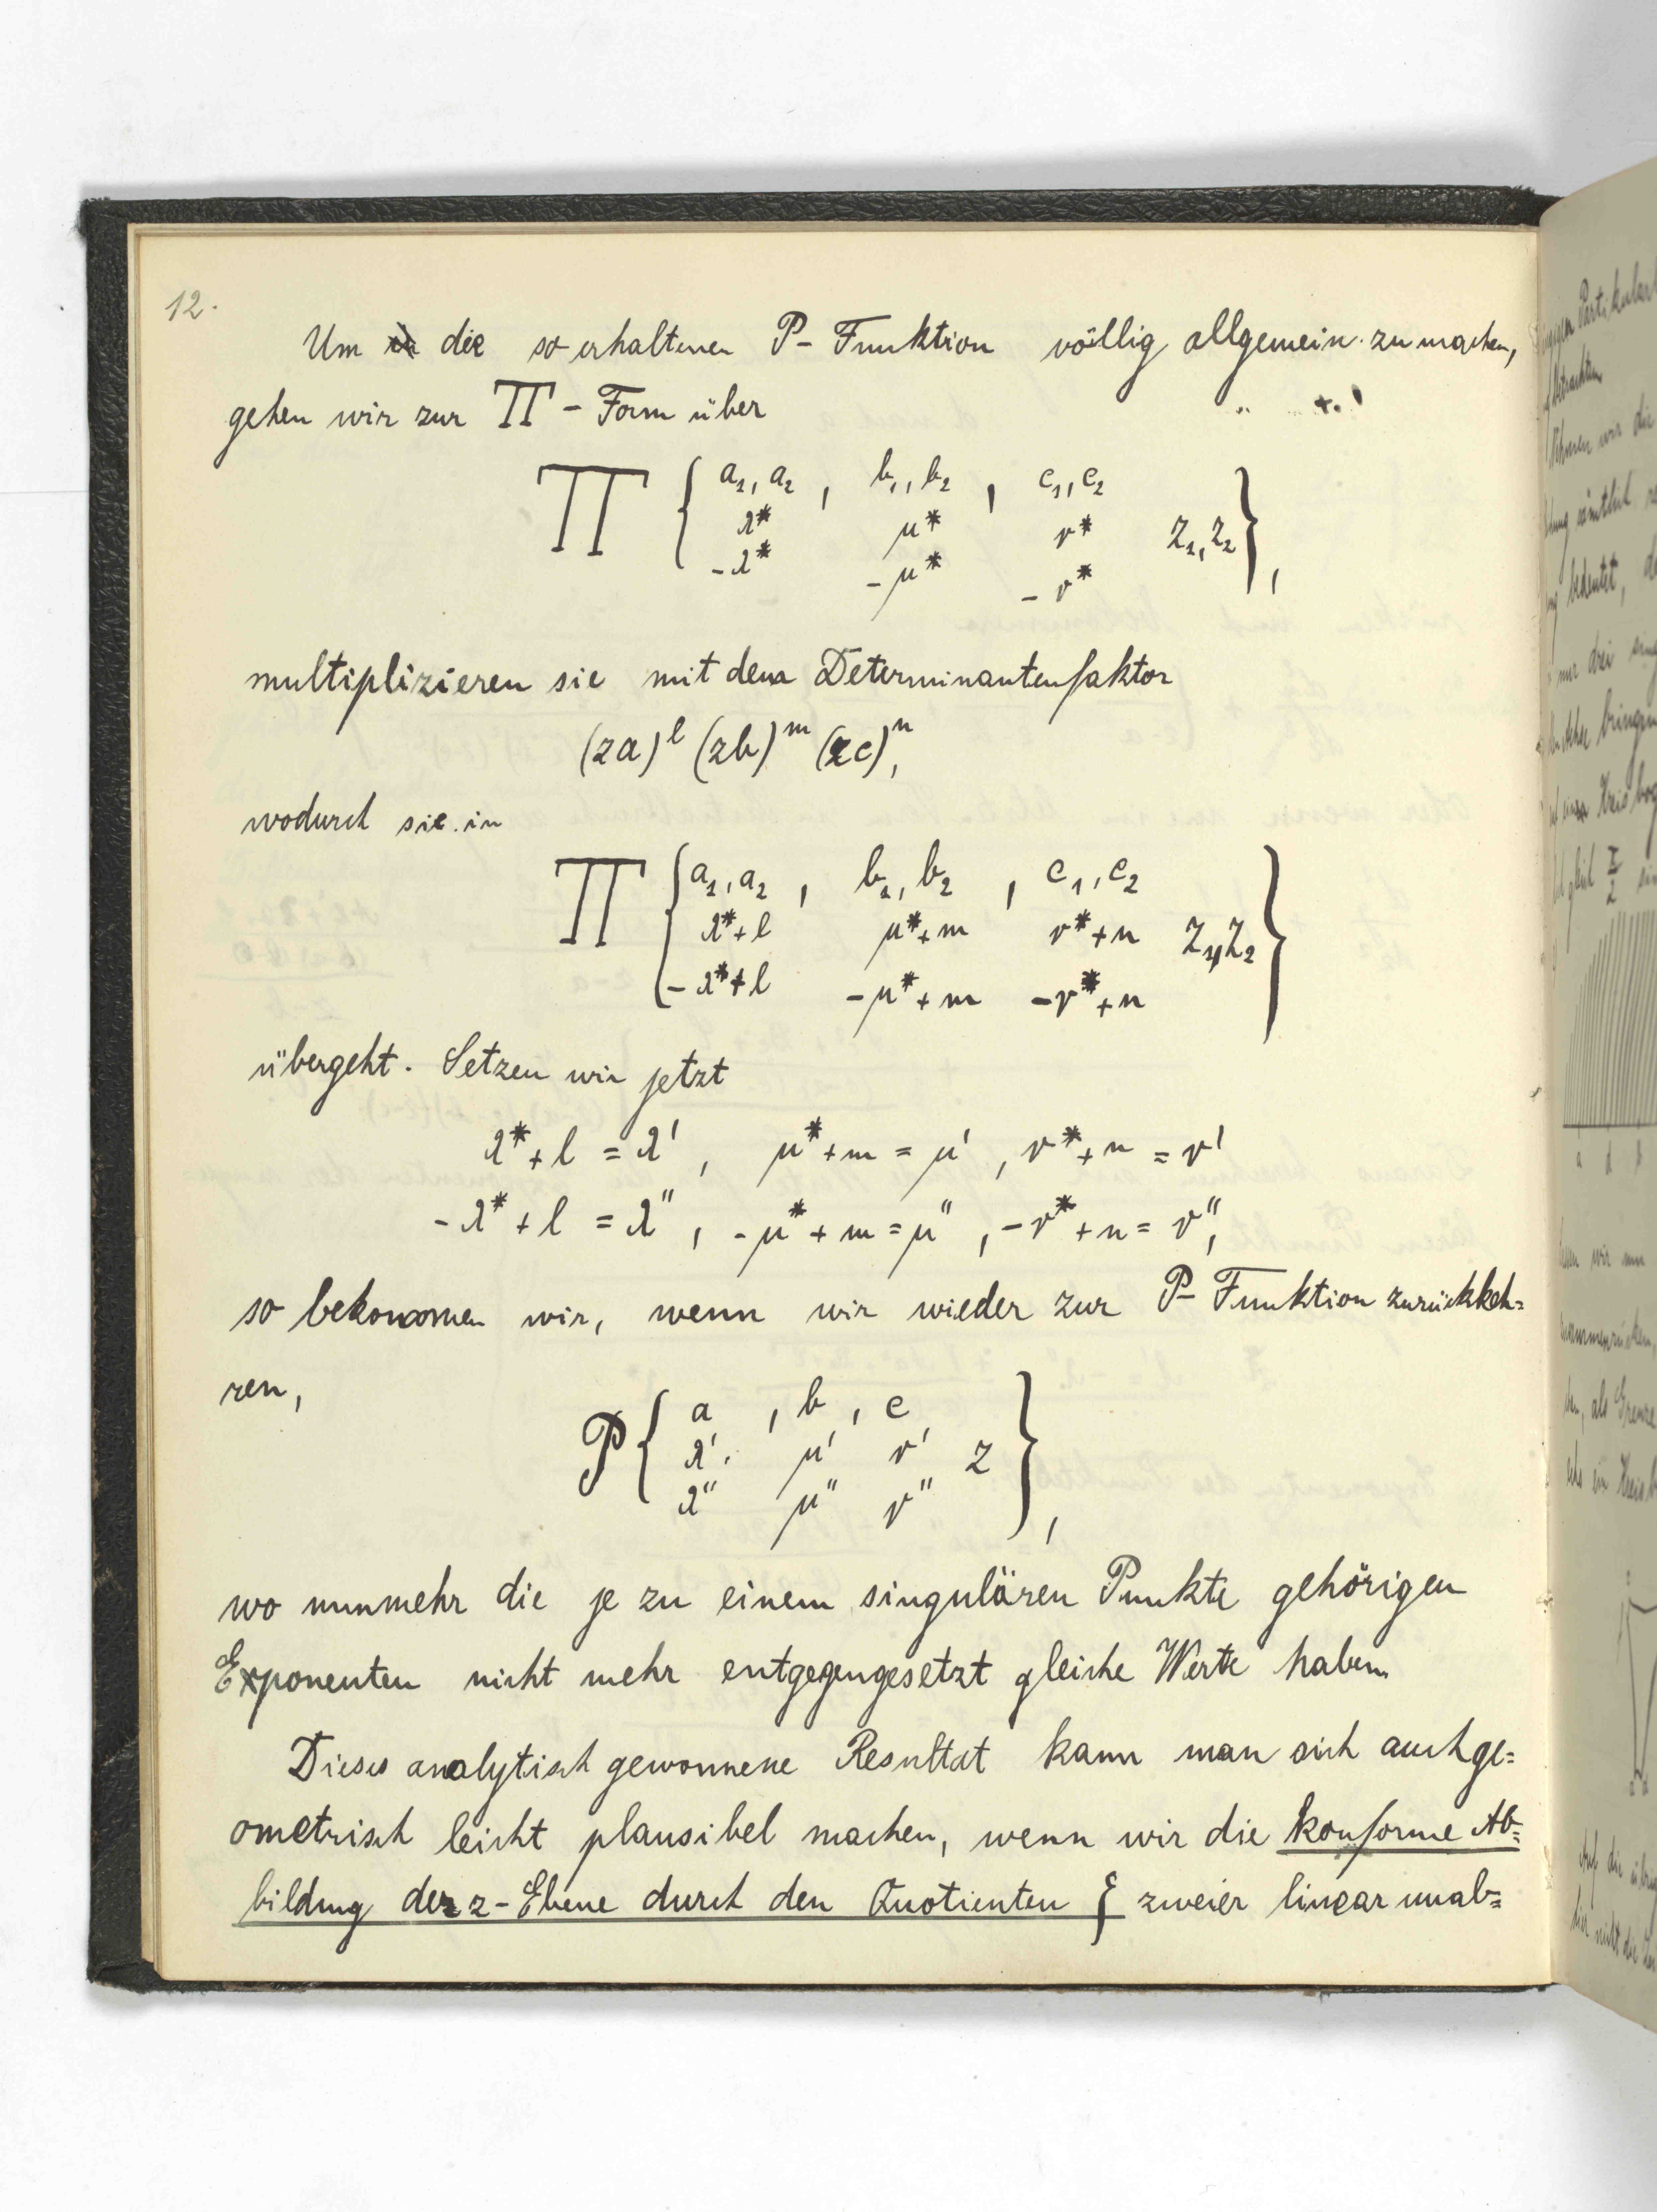 12.
Um die so erhaltenen P- Funktion völlig allgemein zu machen,
gehen wir zur Π - Form über
Π { a₁, a₂ , b₁, b₂ , c₁, c₂
λ* μ* ν* z₁, z₂ } ,
-λ* -μ* -ν*
multiplizieren sie mit dem Determinantenfaktor
(za)^l (zb)^m (zc)^n ,
wodurch sie in
Π { a₁, a₂ , b₁, b₂ , c₁, c₂
λ*+l μ*+m ν*+n z₁, z₂ }
-λ*+l -μ*+m -ν*+n
übergeht. Setzen wir jetzt
λ*+l = λ' , μ*+m = μ' , ν*+n = ν'
-λ*+l = λ'' , -μ*+m = μ'' , -ν*+n = ν'' ,
so bekommen wir, wenn wir wieder zur P- Funktion zurückkeh=
ren,
P { a , b , c
λ' μ' ν' z } ,
λ'' μ'' ν''
wo nunmehr die je zu einem singulären Punkte gehörigen
Exponenten nicht mehr entgegengesetzt gleiche Werte haben.
Dieses analytisch gewonnene Resultat kann man sich auch ge=
ometrisch leicht plausibel machen, wenn wir die konforme Ab=
bildung der z-Ebene durch den Quotienten ζ zweier linear unab=